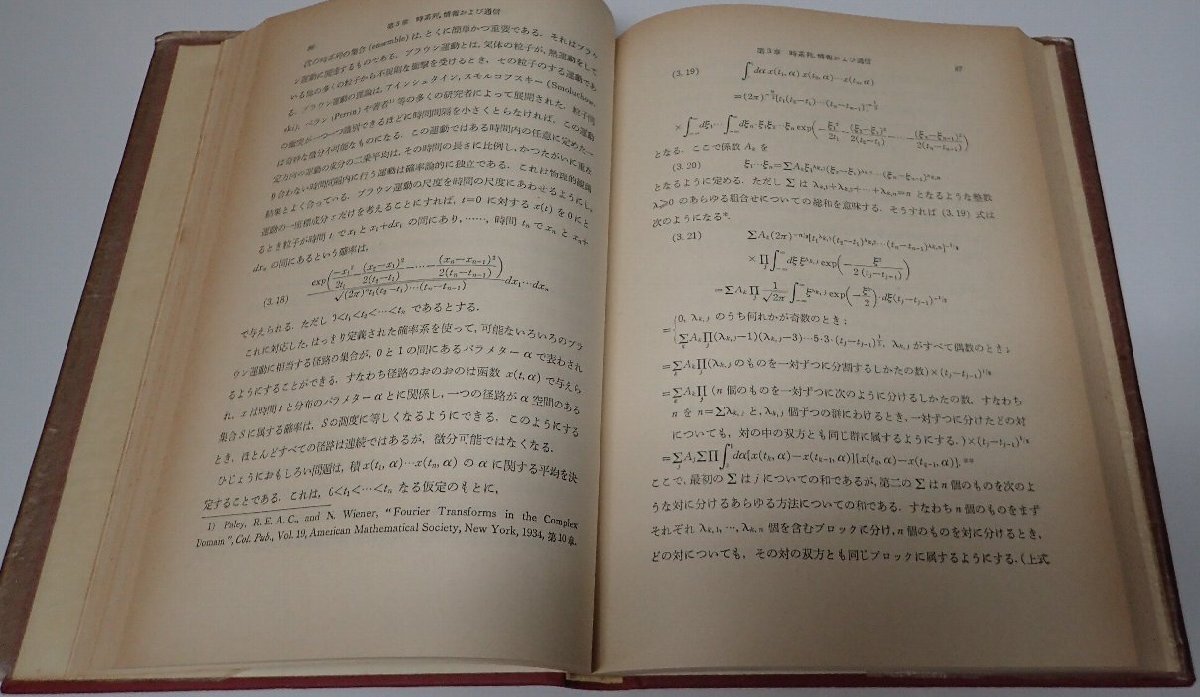 86
第3章 時系列,情報および通信
代の時系列の集合 (ensemble) は,とくに簡単かつ重要である.それはブラウ
ン運動に関連するものである.ブラウン運動とは,気体の粒子が,熱運動をして
いる他の多くの粒子から不規則な衝撃を受けるとき,その粒子のする運動であ
る.ブラウン運動の理論は,アインシュタイン,スモルコフスキー (Smoluchow-
ski), ペラン (Perrin) や著者¹⁾ 等の多くの研究者によって展開された.粒子間
の衝突が一つ一つ識別できるほどに時間間隔を小さくとらなければ,この運動
は奇妙な微分不可能なものになる.この運動ではある時間内の任意に定めた一
定方向の運動の成分の二乗平均は,その時間の長さに比例し,かつたがいに重な
り合わない時間間隔内に行う運動は確率論的に独立である.これは物理的観測
結果とよく合っている.ブラウン運動の尺度を時間の尺度にあわせるようにし,
運動の一座標成分 x だけを考えることにすれば, t=0 に対する x(t) を 0 にと
るとき粒子が時間 t で x₁ と x₁+dx₁ の間にあり,……,時間 tₙ で xₙ と xₙ+
dxₙ の間にあるという確率は,
(3.18) exp(−x₁²/2t₁ − (x₂−x₁)²/2(t₂−t₁) …… (xₙ−xₙ₋₁)²/2(tₙ−tₙ₋₁)) / √(2π)ⁿt₁(t₂−t₁)…(tₙ−tₙ₋₁) dx₁…dxₙ
で与えられる.ただし 0<t₁<t₂<…<tₙ であるとする.
これに対応した,はっきり定義された確率系を使って,可能ないろいろのブラ
ウン運動に相当する径路の集合が, 0 と 1 の間にあるパラメター α で表わされ
るようにすることができる.すなわち径路のおのおのは函数 x(t,α) で与えら
れ, x は時間 t と分布のパラメター α とに関係し,一つの径路が α 空間のある
集合 S に属する確率は, S の測度に等しくなるようにできる.このようにする
とき,ほとんどすべての径路は連続ではあるが,微分可能ではなくなる.
ひじょうにおもしろい問題は,積 x(t₁,α)…x(tₙ,α) の α に関する平均を決
定することである.これは, 0<t₁<…<tₙ なる仮定のもとに,
1) Paley, R.E.A.C., and N. Wiener, "Fourier Transforms in the Complex
Domain", Col. Pub., Vol. 19, American Mathematical Society, New York, 1934, 第10章.
第3章 時系列,情報および通信
87
(3.19) ∫₀¹dα x(t₁,α) x(t₂,α)…x(tₙ,α)
=(2π)^{−n/2}[t₁(t₂−t₁)…(tₙ−tₙ₋₁)]^{−1/2}
×∫_{−∞}^{∞}dξ₁…∫_{−∞}^{∞}dξₙ ξ₁ξ₂…ξₙ exp(−ξ₁²/2t₁ − (ξ₂−ξ₁)²/2(t₂−t₁) …… (ξₙ−ξₙ₋₁)²/2(tₙ−tₙ₋₁))
となる.ここで係数 Aₖ を
(3.20) ξ₁…ξₙ=ΣAₖξ₁^{λk,1}(ξ₂−ξ₁)^{λk,2}…(ξₙ−ξₙ₋₁)^{λk,n}
となるように定める.ただし Σ は λk,1+λk,2+…+λk,n=n となるような整数
λ≧0 のあらゆる組合せについての総和を意味する.そうすれば (3.19) 式は
次のようになる*.
(3.21) ΣAₖ(2π)^{−n/2}[t₁^{λk,1}(t₂−t₁)^{λk,2}…(tₙ−tₙ₋₁)^{λk,n}]^{−1/2}
×∏∫_{−∞}^{∞}dξ ξ^{λk,j} exp(−ξ²/2(tⱼ−tⱼ₋₁))
=ΣAₖ∏ 1/√2π ∫_{−∞}^{∞}ξ^{λk,j} exp(−ξ²/2)·dξ(tⱼ−tⱼ₋₁)^{−1/2}
={0, λk,j のうち何れかが奇数のとき;
ΣAₖ∏(λk,j−1)(λk,j−3)…5·3·(tⱼ−tⱼ₋₁)^{1/2}, λk,j がすべて偶数のとき;
=ΣAₖ∏(λk,j のものを一対ずつに分割するしかたの数)×(tⱼ−tⱼ₋₁)^{1/2}
=ΣAₖ∏ (n 個のものを一対ずつに次のように分けるしかたの数,すなわち
n を n=Σλk,j と, λk,j 個ずつの群にわけるとき,一対ずつに分けたどの対
についても,対の中の双方とも同じ群に属するようにする.)×(tⱼ−tⱼ₋₁)^{1/2}
=ΣAⱼΣ∏∫₀¹dα[x(tₖ,α)−x(tₖ₋₁,α)][x(t_q,α)−x(t_{q−1},α)].**
ここで,最初の Σ は j についての和であるが,第二の Σ は n 個のものを次のよ
うな対に分けるあらゆる方法についての和である.すなわち n 個のものをまず
それぞれ λk,1, …, λk,n 個を含むブロックに分け, n 個のものを対に分けるとき,
どの対についても,その対の双方とも同じブロックに属するようにする.(上式